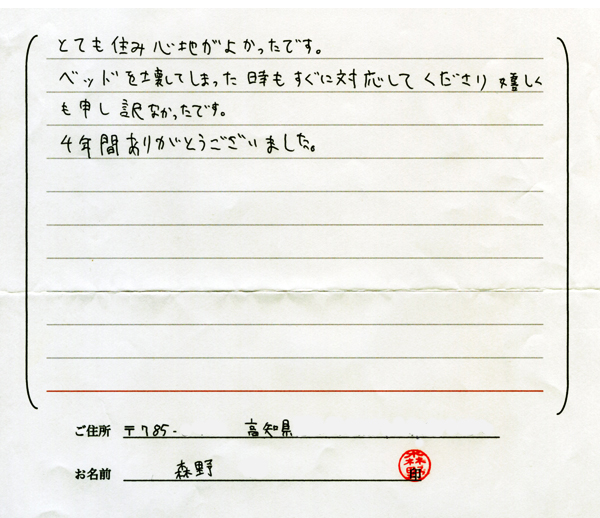 とても住み心地がよかったです。
ベッドを壊してしまった時もすぐに対応してくださり嬉しく
も申し訳なかったです。
4年間ありがとうございました。
ご住所 〒785- 高知県
お名前 森野 印
森野